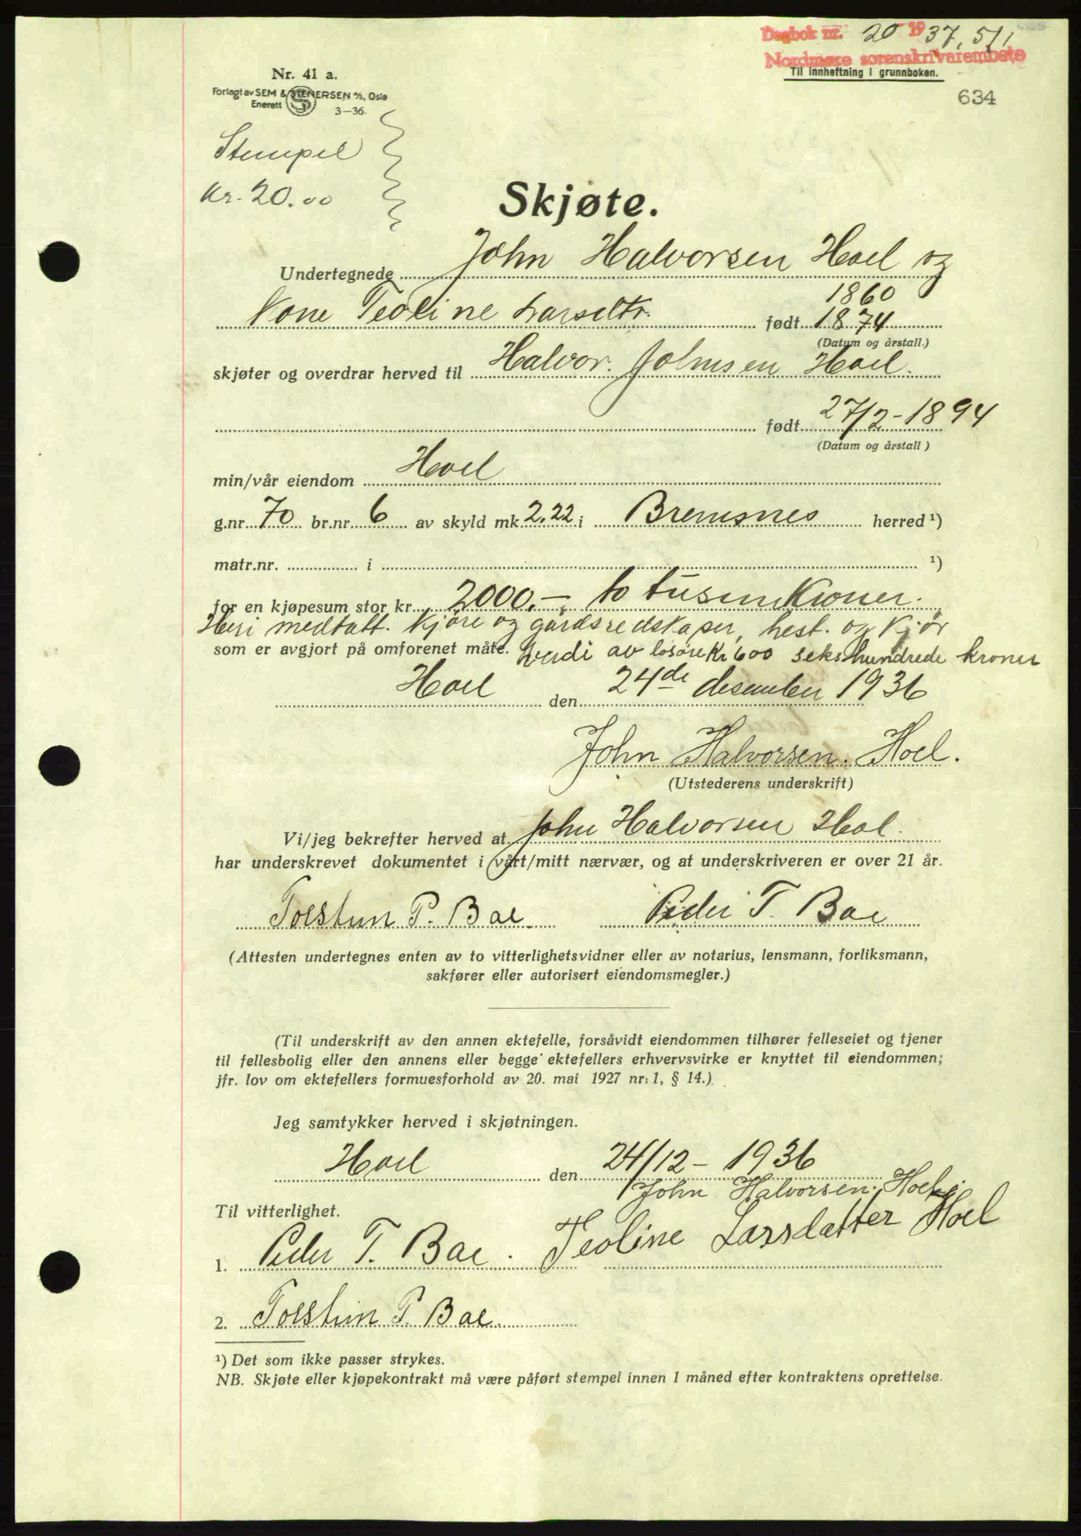 Dagbok nr. 20 1937, 5/1
Nordmøre sorenskriverembete
Til innheftning i grunnboken.
634
Nr. 41 a.
Forlagt av SEM & STENERSEN A/S, Oslo
Enerett
3-36.
Stempel
Kr. 20.00
Skjøte.
Undertegnede John Halvorsen Hoel og
Kone Teoline Larsdtr. født 1860
1874
(Datum og årstall.)
skjøter og overdrar herved til Halvor Johnsen Hoel.
født 27/2-1894
(Datum og årstall)
min/vår eiendom Hoel
g.nr. 70 br.nr 6 av skyld mk. 2.22 i Bremsnes herred ¹)
matr.nr. i ¹)
for en kjøpesum stor kr. 2000.-, to tusen Kroner.
Heri medtatt. Kjøre og gårdsredskaper, hest. og Kjør
som er avgjort på omforenet måte. Verdi av losøre Kr 600 sekshundrede kroner
Hoel den 24de desember 1936
John Halvorsen. Hoel.
(Utstederens underskrift)
Vi/jeg bekrefter herved at John Halvorsen Hoel.
har underskrevet dokumentet i vårt/mitt nærvær, og at underskriveren er over 21 år.
Torstein P. Bae. Peder T. Bae
(Attesten undertegnes enten av to vitterlighetsvidner eller av notarius, lensmann, forliksmann,
sakfører eller autorisert eiendomsmegler.)
(Til underskrift av den annen ektefelle, forsåvidt eiendommen tilhører felleseiet og tjener
til fellesbolig eller den annens eller begge ektefellers erhvervsvirke er knyttet til eiendommen;
jfr. lov om ektefellers formuesforhold av 20. mai 1927 nr. 1, § 14.)
Jeg samtykker herved i skjøtningen.
Hoel den 24/12-1936
John Halvorsen. Hoel.
Til vitterlighet.
1. Peder T. Bae. Teoline Larsdatter Hoel
2. Torstein P. Bae.
¹) Det som ikke passer strykes.
NB. Skjøte eller kjøpekontrakt må være påført stempel innen 1 måned efter kontraktens oprettelse.